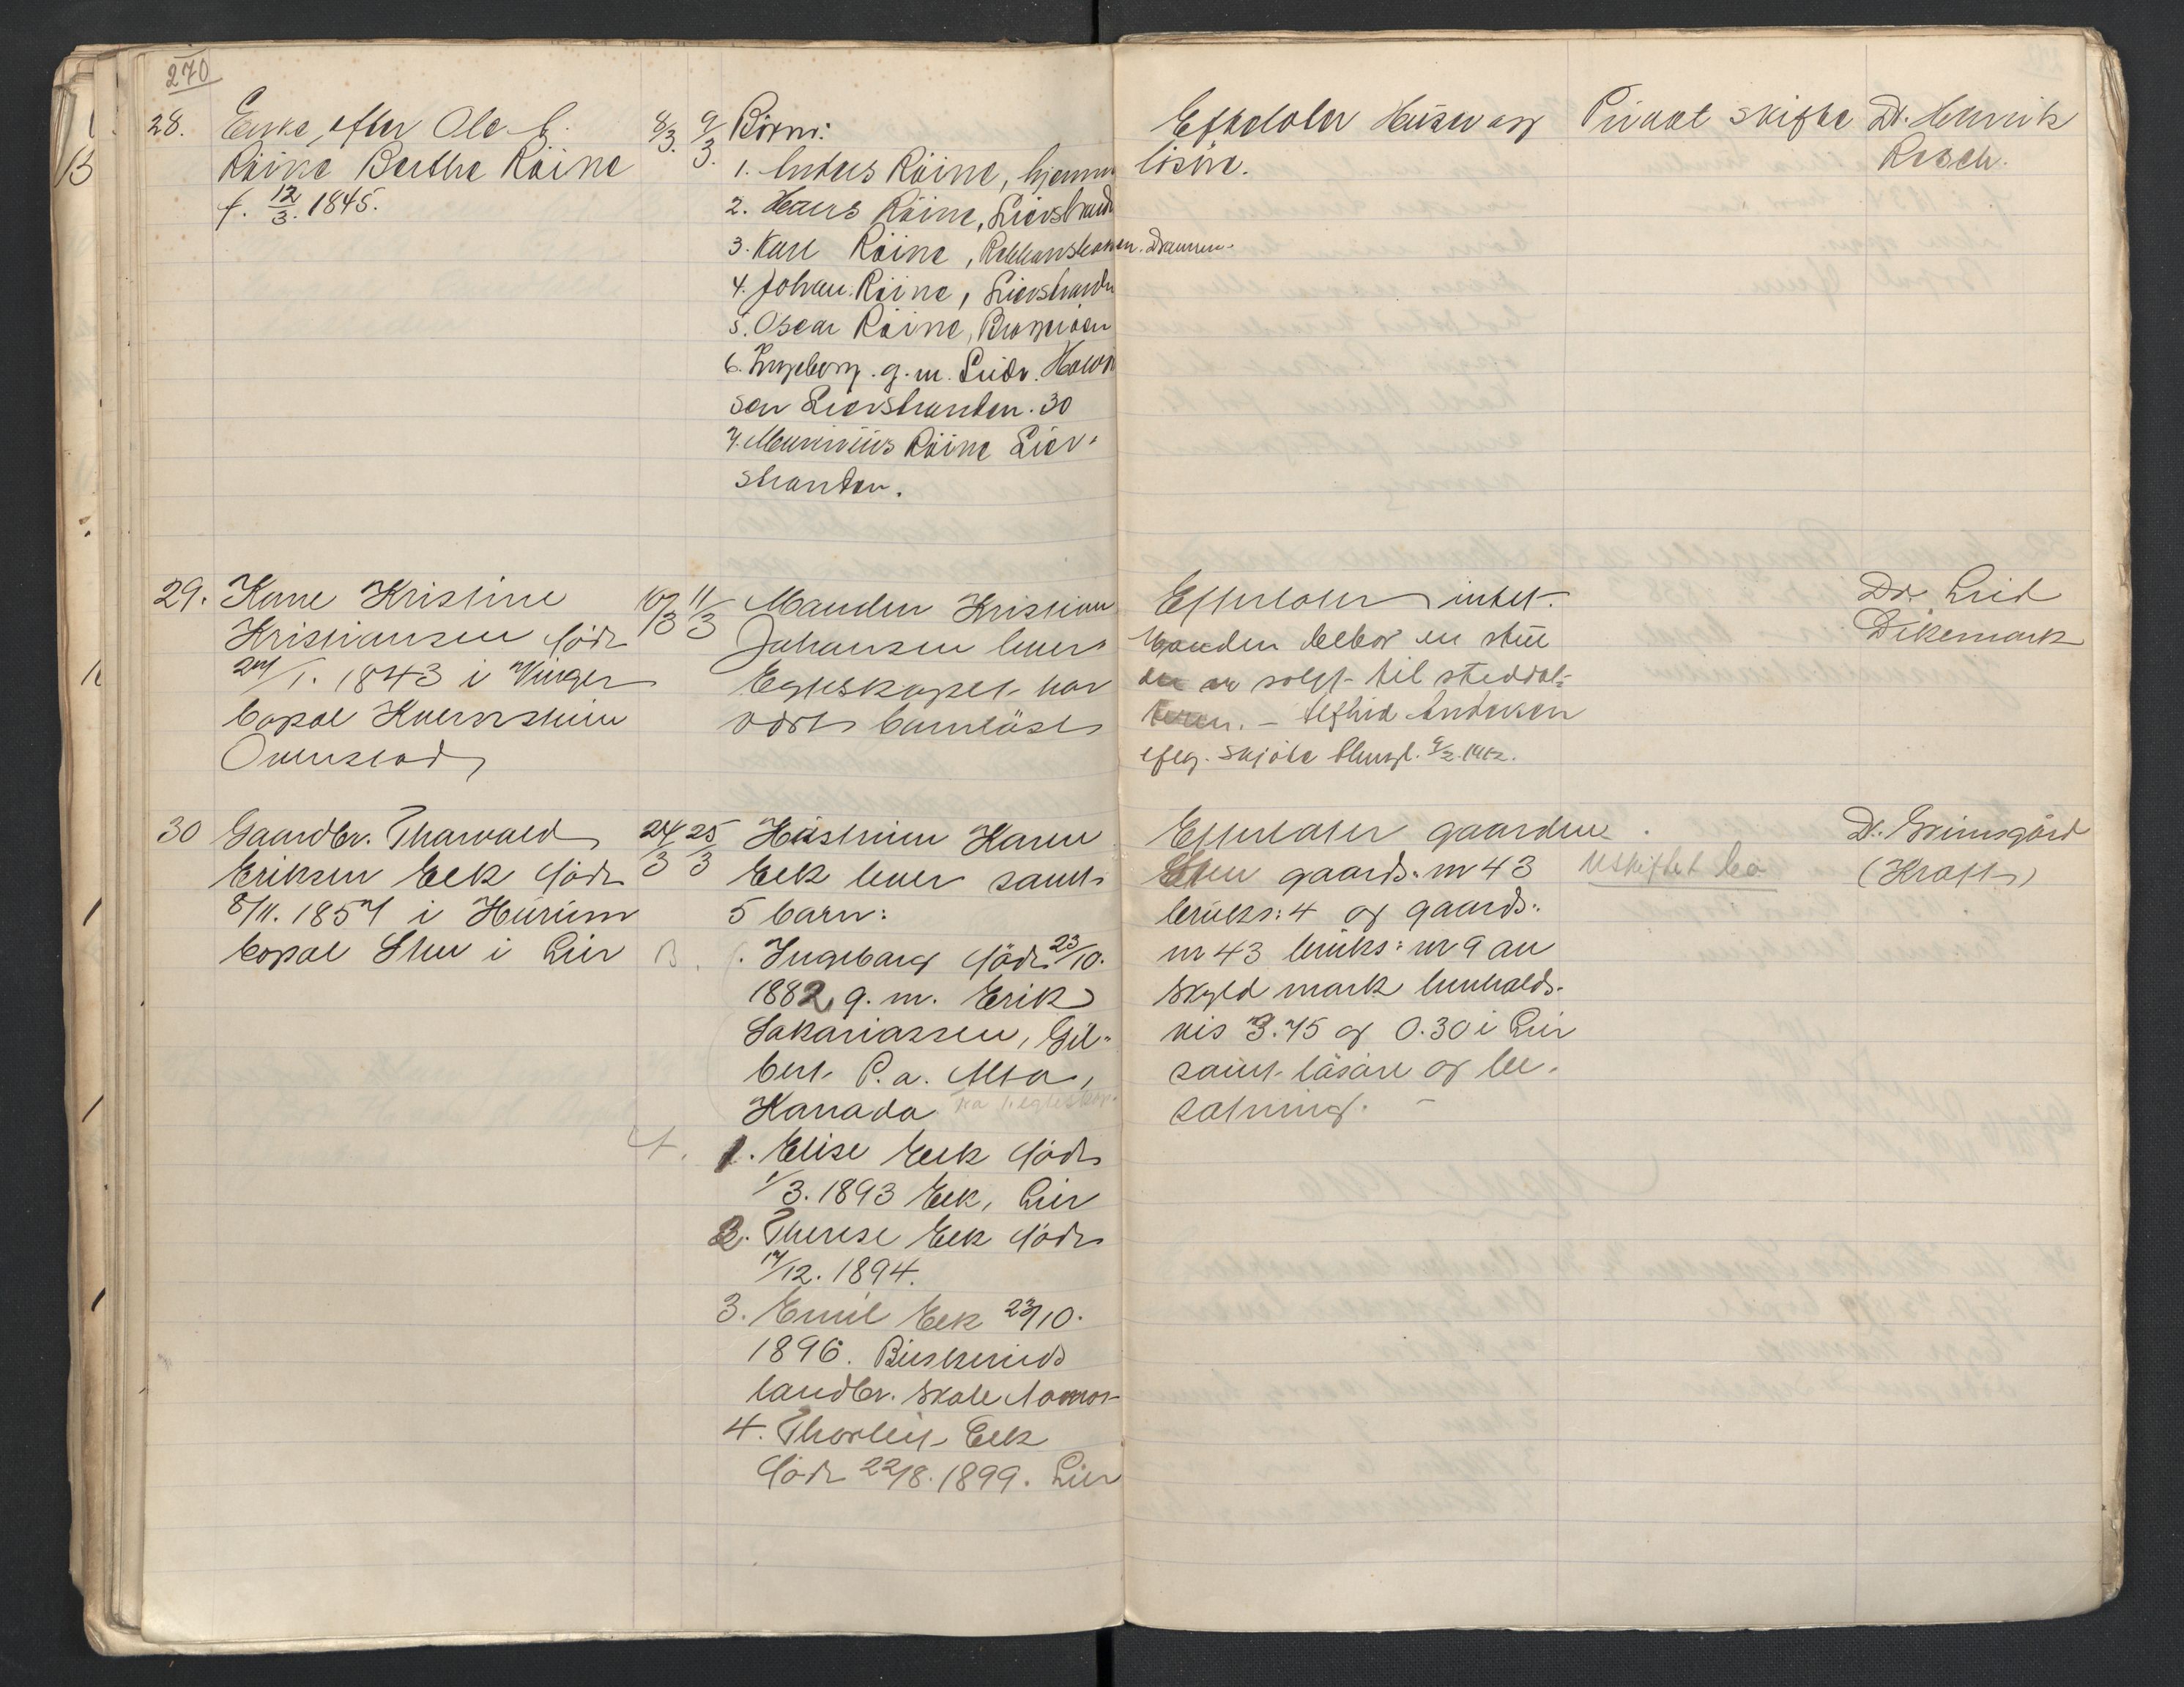 270
28.
Enke efter Ole C.
Röine Berthe Röine
f. 12/3. 1845.
8/3.
9/3.
Börn:
1. Anders Röine, hjemme
2. Hans Röine, Lierstrand
3. Karl Röine, Drammen.
4. Johan Röine, Lierstranden
5. Oscar Röine, Bragerøen
6. Ingeborg. g. m. Ludv.
sen Lierstranden. 30
7. Röine Lier-
stranden.
Efterlater Huser og
lösöre.
Privat skifte
Dr. Henrik
Resch.
29.
Karen Kristine
Kristiansen född
27/1. 1843 i Vinger
bopæl Kvernsteinen
Ovenstad
10/3
11/3
Manden Kristian
Johansen lever
Egteskapet har
vært barnløst
Efterlater intet.
Manden bebor en stue
er solgt til steddat-
teren. - Andersen
efter skjøte 9/2. 1912.
Dr. Lid
Dikemark
30
Gaardbr. Tharvald
Eriksen Eek född
8/11. 1857 i Hurum
bopæl Stue i Lier
24/3
25/3
Hustruen Karen
Eek lever samt
5 barn:
B.
. Ingeborg född 23/10.
1882, g. m. Erik
Sakariassen, Gil-
bert P. a. Alta,
Kanada
4.
1. Elise Eek född
1/3. 1893 Eek, Lier
2. Therese Eek född
17/12. 1894.
3. Emil Eek 23/10.
1896. Buskeruds
landbr. skole
4. Thorleif Eek
född 22/8. 1899. Lier
Efterlater gaarden
gaards: nr 43
bruks: 4 og gaards:
nr 43 bruks: nr 9 av
skyld mark henholds-
vis 3.75 og 0.30 i Lier
samt läsöre og be-
sætning. -
Uskiftet bo
Dr. Grimsgård
(Kraft)